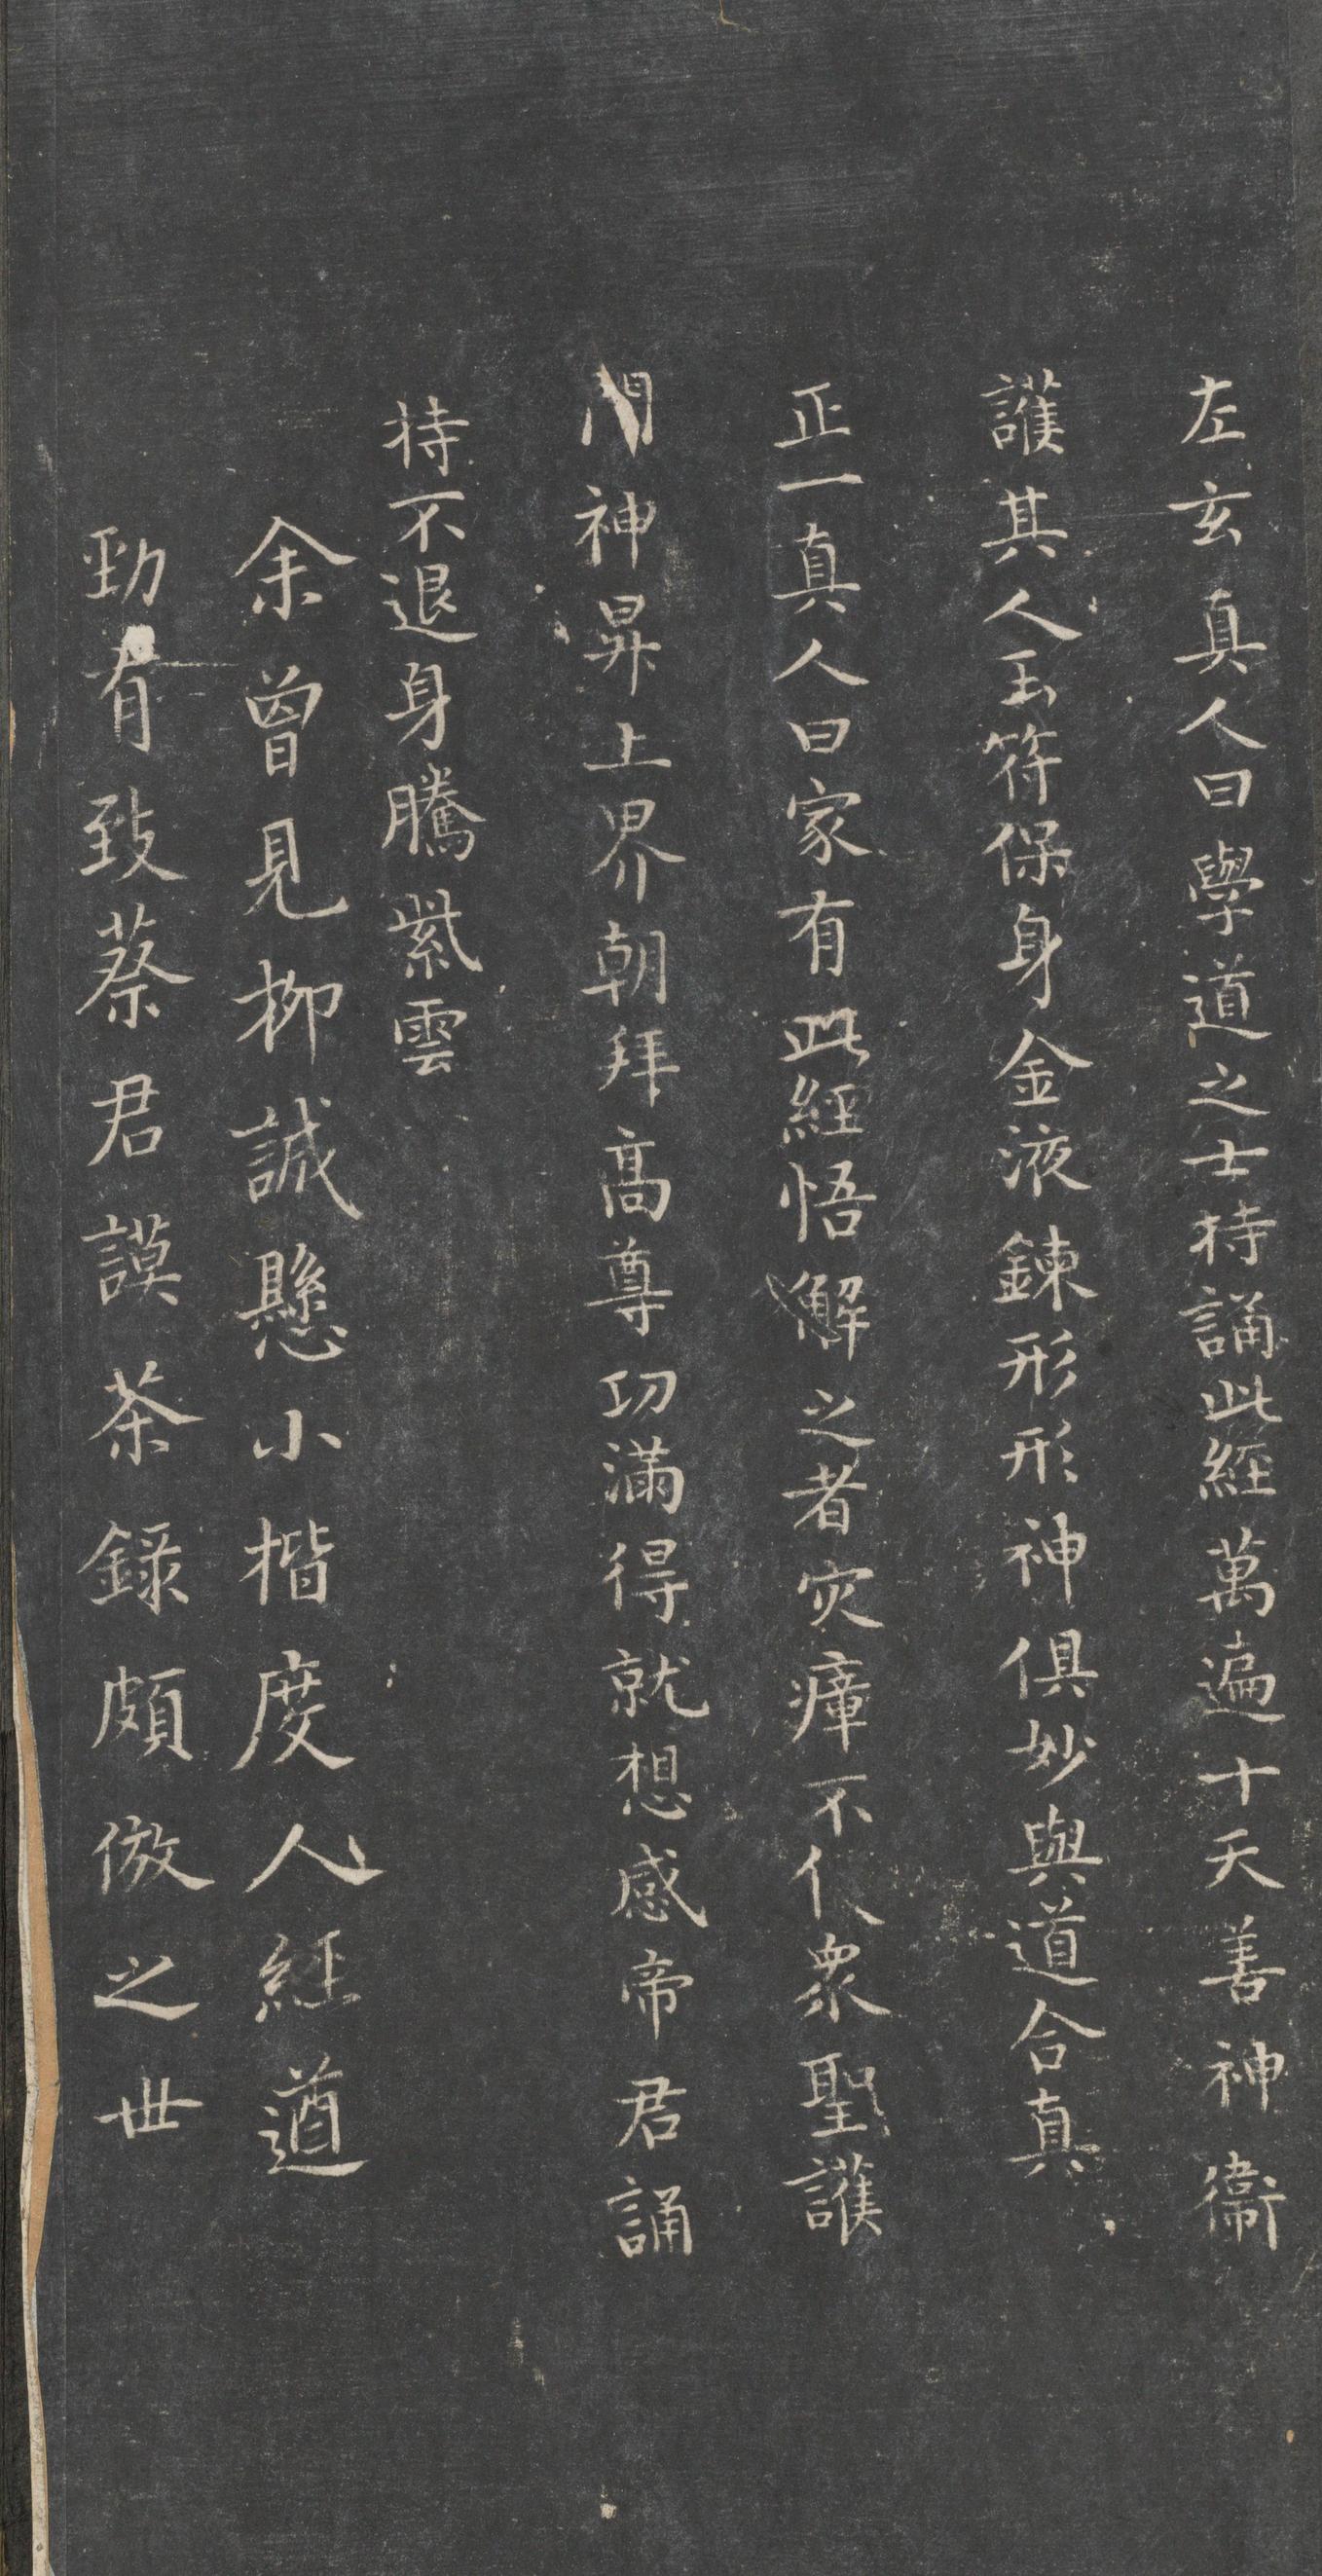 左玄真人曰學道之士持誦此經萬遍十天善神衞
護其人玉符保身金液鍊形形神俱妙與道合真
正一真人曰家有此經悟解之者灾瘴不仸衆聖護
門神昇上界朝拜高尊功滿得就想感帝君誦
持不退身騰紫雲
余曾見柳誠懸小楷度人經遒
勁有致蔡君謨茶錄頗倣之世